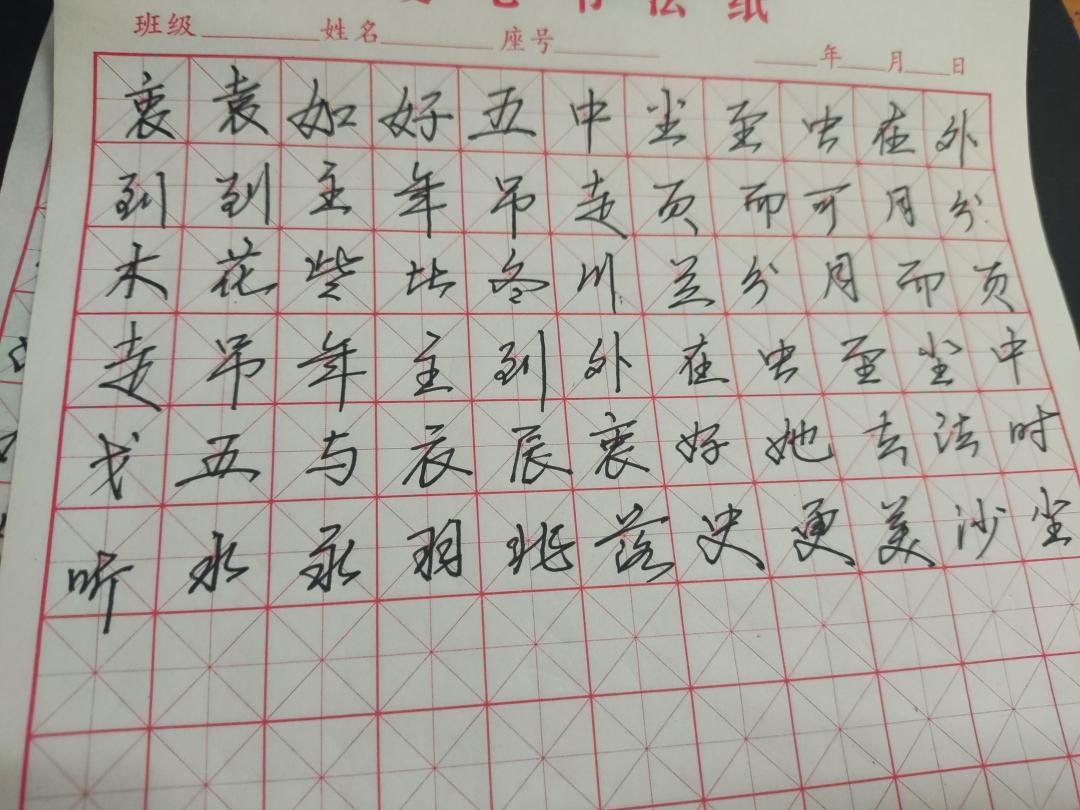 书法纸
班级 姓名 座号 年 月 日
衷袁如好五中尘至虫在外
到到主年吊走页而可月分
木花些比冬川兰分月而页
走吊年主到外在虫至尘中
戈五与衣辰衷好她去法时
听水永羽兆落史更美沙尘